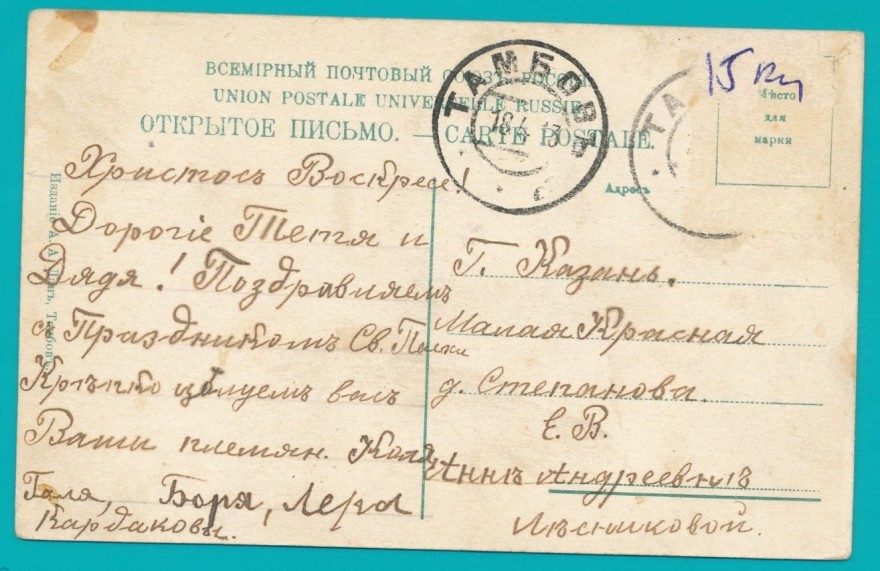 ВСЕМІРНЫЙ ПОЧТОВЫЙ СОЮЗЪ. РОССІЯ
UNION POSTALE UNIVERSELLE RUSSIE
ОТКРЫТОЕ ПИСЬМО. — CARTE POSTALE.
ТАМБОВЪ
15 кп
Мѣсто
для
марки
ТА
Адресъ
Христосъ Воскресе!
Дорогіе Тетя и
Дядя! Поздравляемъ
съ Праздникомъ Св. Пасхи
Крѣпко цѣлуемъ васъ
Ваши племян. Коля,
Галя, Боря, Лера
Кардаковы.
Г. Казань.
Малая Красная
д. Степанова.
Е. В.
Аннѣ Андреевнѣ
Лѣсниковой.
Изданіе А. А. Тамбовъ